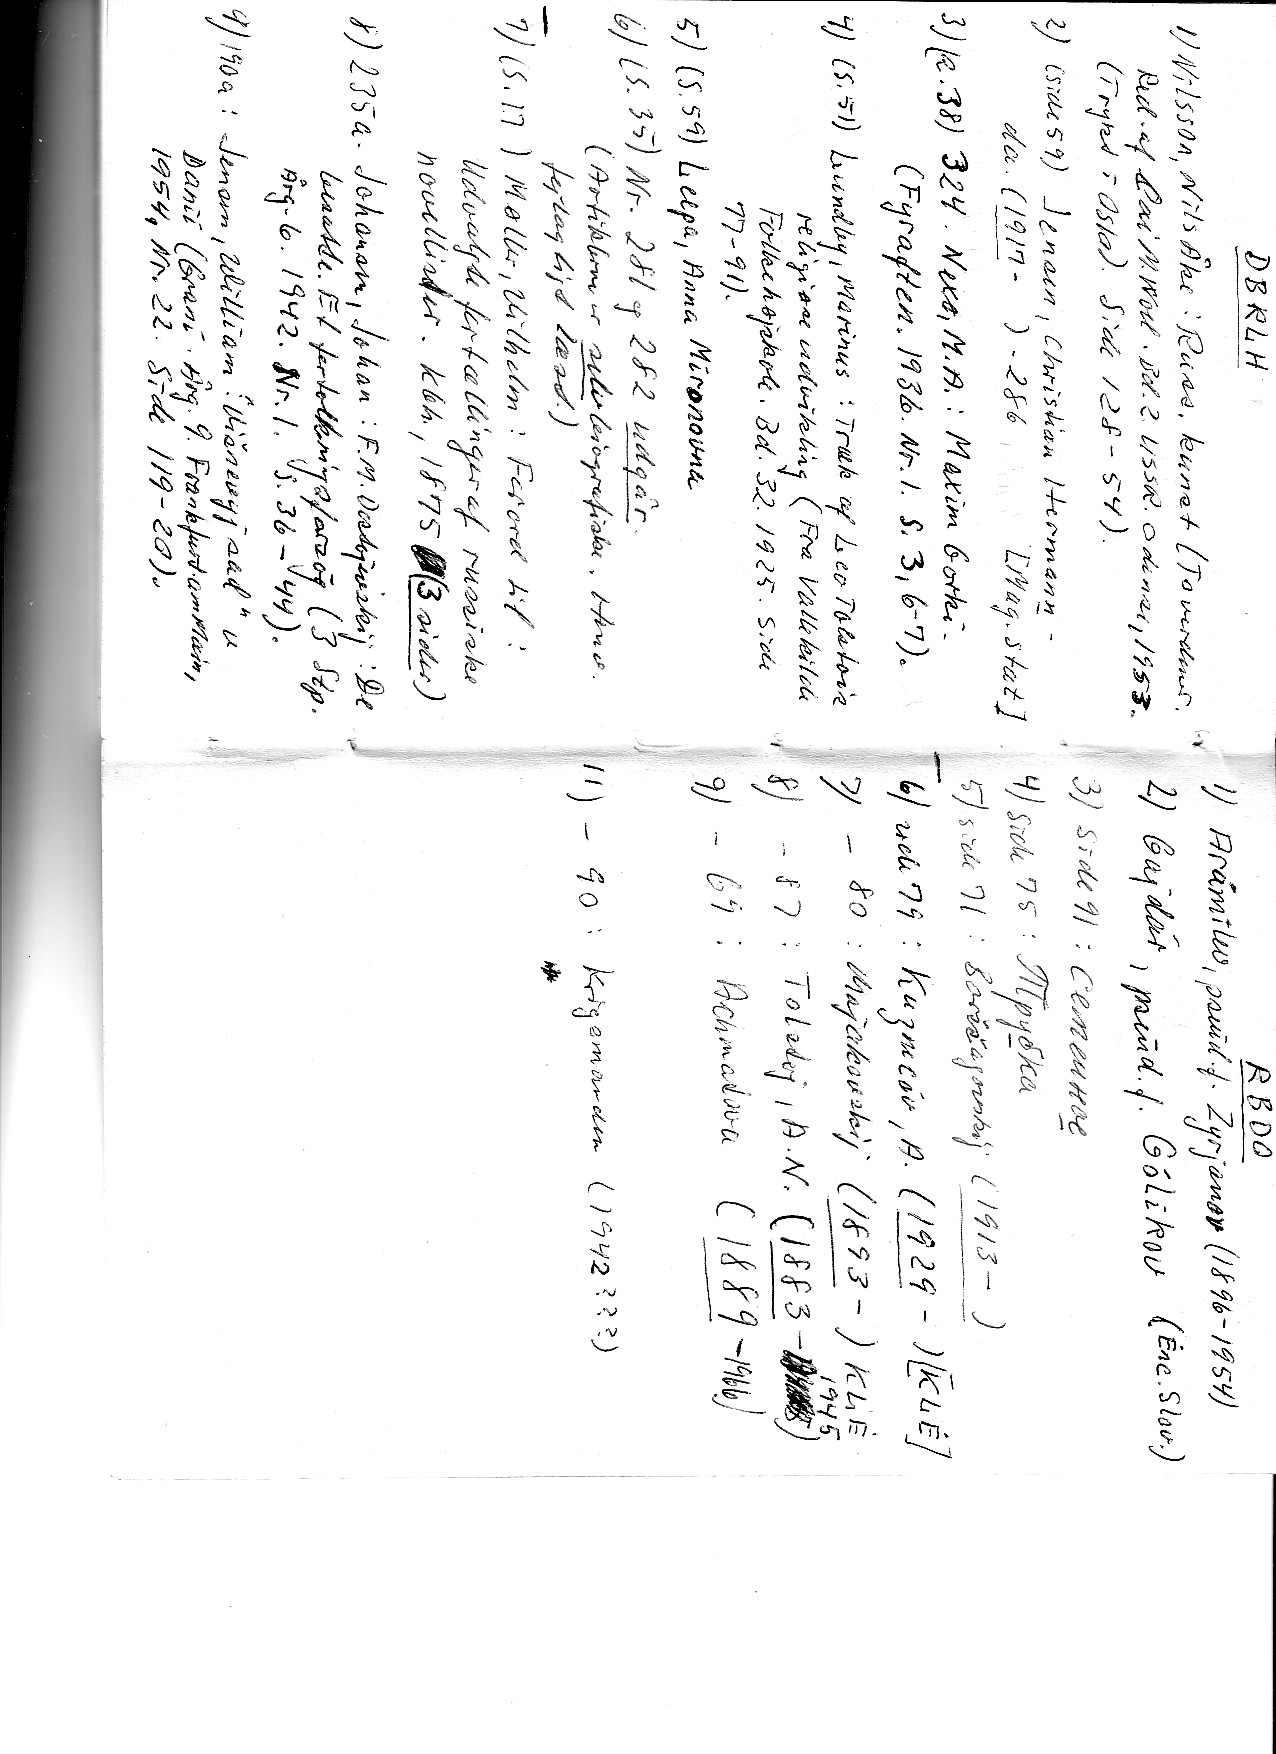 DBRLH
1) Nilsson, Nils Åke: Russ. kunst (I Tourdnus.
Red. af Poul M. Mod. Bd. 2. USSR. Odense, 1953.
(Trykt i Oslo). Side 128-54).
2) (side 59) Jensen, Christian Hermann-
da. (1917- )-286 [Mag. stat]
3) (k. 38) 324. Nexø, M.A.: Maxim Gorki-
(Fyraften. 1936. Nr. 1. S. 3, 6-7).
4) (S. 51) Lundby, Marinus: Træk af Leo Tolstois
religiøse udvikling (Fra Vallekilde
Folkehøjskole. Bd. 32. 1925. Side
77-91).
5) (S. 59) Leepa, Anna Mironovna
6) (S. 35) Nr. 281 og 282 udgår.
(Artiklerne er selvbiografiske. Have
fejlagtigt læsd.)
7) (S. 17) Møller, Vilhelm: Forord til:
Udvalgte fortællinger af russiske
novellister. Kbh., 1875 (3 sider)
8) 235a. Johansen, Johan: F.M. Dostojevskij: De
besatte. Et fortolkningsforsøg (3 Stp.
Årg. 6. 1942. Nr. 1. S. 36-44).
9) 190a: Jensen, William: "Višnevyj sad" v
Danii (Grani. Årg. 9. Frankfurt am Main,
1954, Nr. 22. Side 119-20).
RBDO
1) Arámilev, pseud. f. Zyrjanov (1896-1954)
2) Gajdár, pseud. f. Gólikov (Enc. Slov.)
3) Side 91: Семенное
4) Side 75: Трубка
5) side 71: Borščagovskij (1913- )
6) side 79: Kuznecóv, A. (1929- ) [KLĖ]
7) - 80: Majakovskij (1893- ) KLĖ
8) - 87: Tolstoj, A.N. (1883-1945)
9) - 69: Achmatova (1889-1966)
11) - 90: Krigsmanden (1942???)